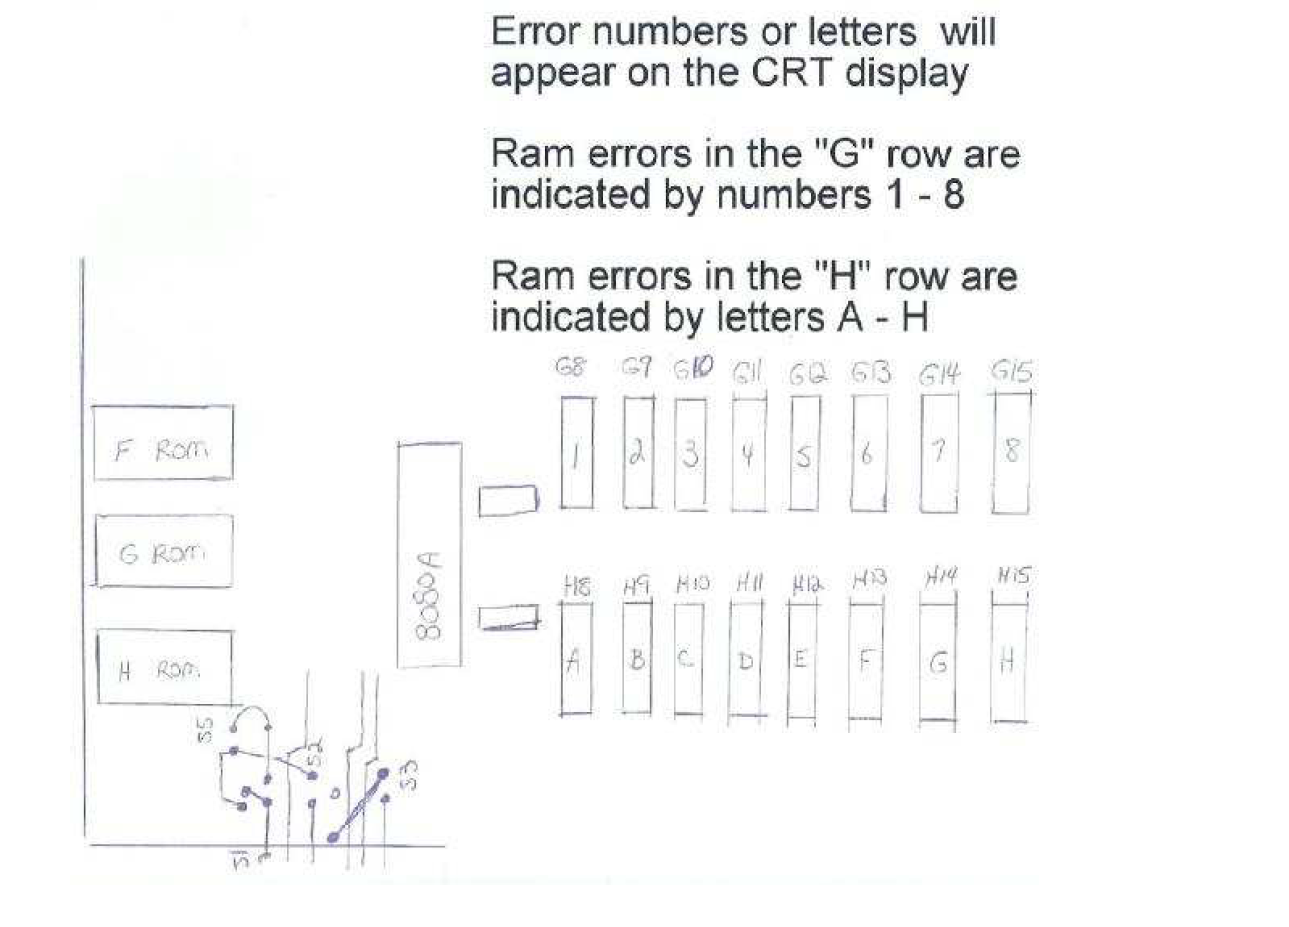 Error numbers or letters will
appear on the CRT display
Ram errors in the "G" row are
indicated by numbers 1 - 8
Ram errors in the "H" row are
indicated by letters A - H
G8 G9 G10 G11 G12 G13 G14 G15
F ROM
1 2 3 4 5 6 7 8
G ROM
8080A
H8 H9 H10 H11 H12 H13 H14 H15
H ROM
A B C D E F G H
S5
S2
S3
S1